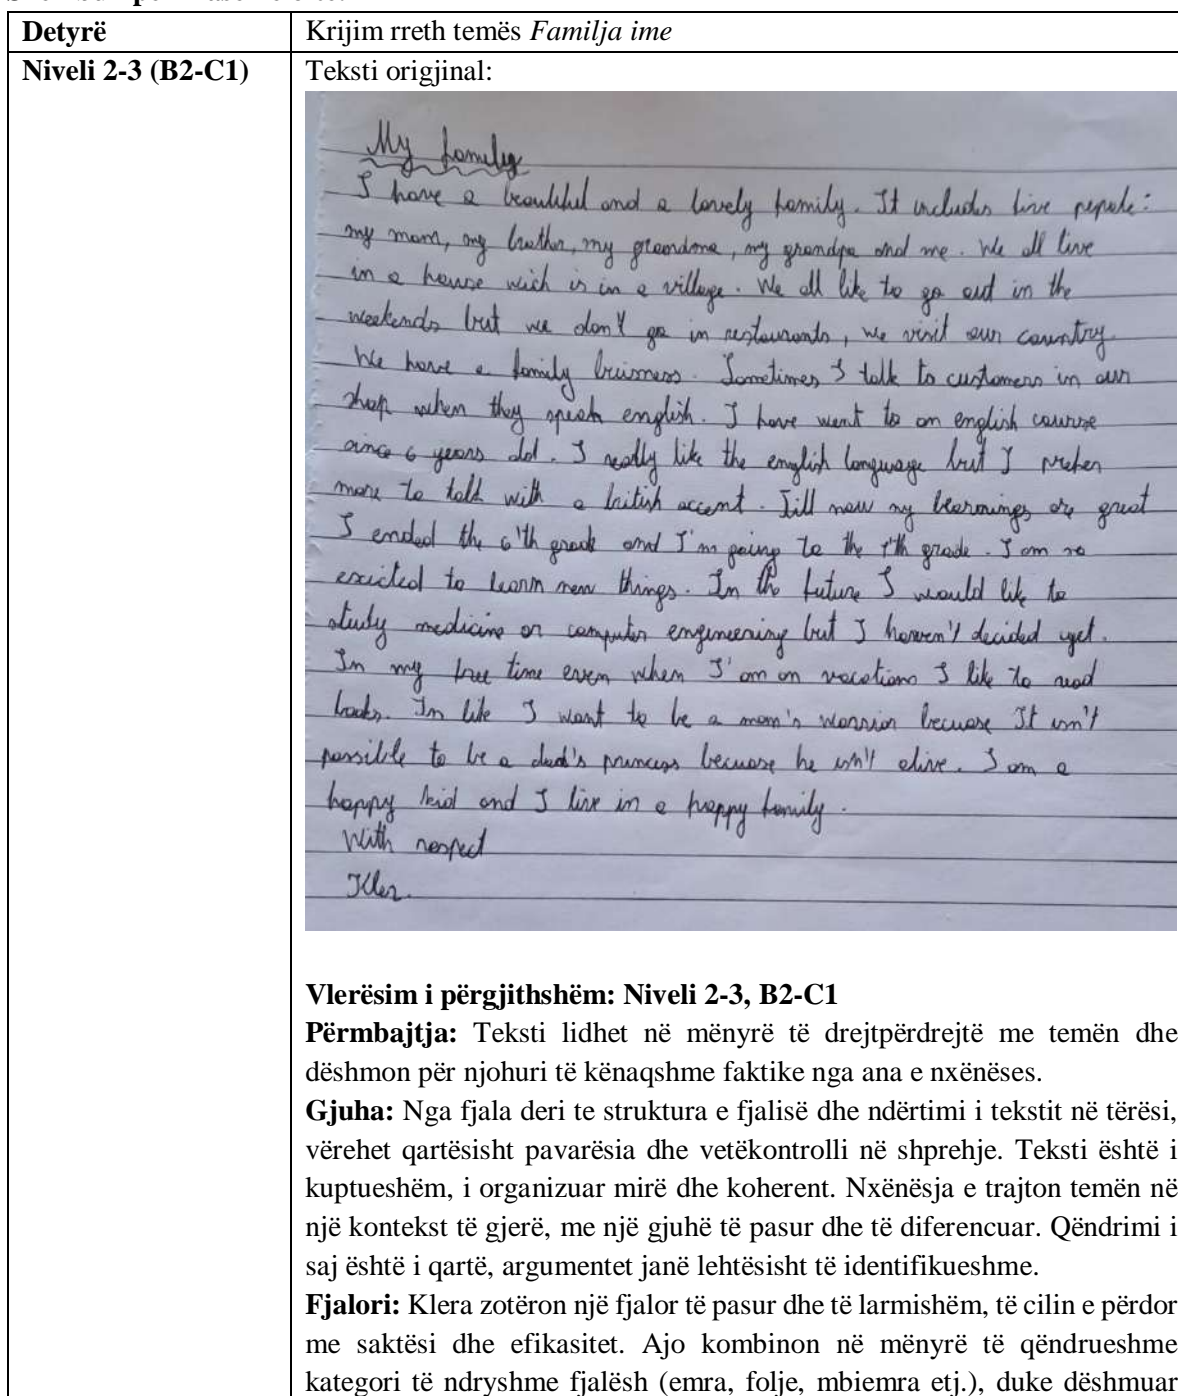 Detyrë
Krijim rreth temës Familja ime
Niveli 2-3 (B2-C1)
Teksti origjinal:
My family
I have a beautiful and a lovely family. It includes five pepole:
my mom, my brother, my grandma, my grandpa and me. We all live
in a house wich is in a village. We all like to go out in the
weekends but we don't go in restaurants, we visit our country.
We have a family bruisness. Sometimes I talk to customers in our
shop when they speak english. I have went to an english course
since 6 years old. I really like the english language but I prefer
more to talk with a british accent. Till now my learnings are great
I ended the 6'th grade and I'm going to the 7'th grade. I am so
excicted to learn new things. In the future I would like to
study medicine or computer engineering but I haven't decided yet.
In my free time even when I'am on vacations I like to read
books. In life I want to be a mom's warrior becuase It isn't
possible to be a dad's princess becuase he isn't alive. I am a
happy kid and I live in a happy family.
With respect
Kler.
Vlerësim i përgjithshëm: Niveli 2-3, B2-C1
Përmbajtja: Teksti lidhet në mënyrë të drejtpërdrejtë me temën dhe
dëshmon për njohuri të kënaqshme faktike nga ana e nxënëses.
Gjuha: Nga fjala deri te struktura e fjalisë dhe ndërtimi i tekstit në tërësi,
vërehet qartësisht pavarësia dhe vetëkontrolli në shprehje. Teksti është i
kuptueshëm, i organizuar mirë dhe koherent. Nxënësja e trajton temën në
një kontekst të gjerë, me një gjuhë të pasur dhe të diferencuar. Qëndrimi i
saj është i qartë, argumentet janë lehtësisht të identifikueshme.
Fjalori: Klera zotëron një fjalor të pasur dhe të larmishëm, të cilin e përdor
me saktësi dhe efikasitet. Ajo kombinon në mënyrë të qëndrueshme
kategori të ndryshme fjalësh (emra, folje, mbiemra etj.), duke dëshmuar